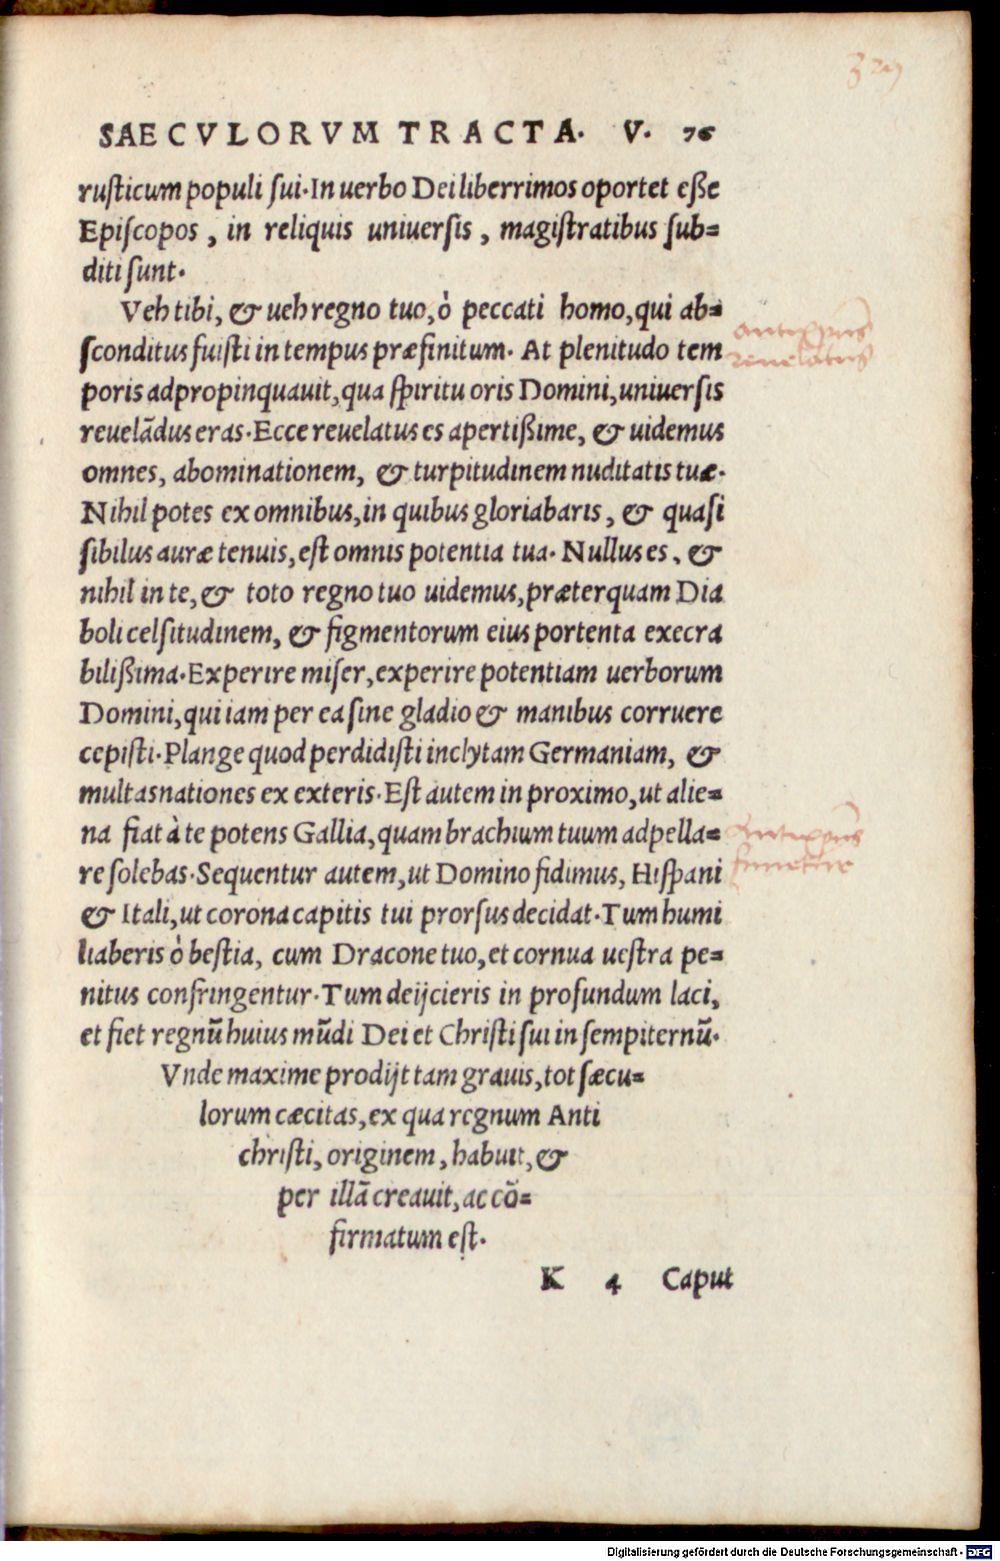 SAECVLORVM TRACTA. V. 76
rusticum populi sui. In uerbo Dei liberrimos oportet eße
Episcopos, in reliquis uniuersis, magistratibus sub=
diti sunt.
Veh tibi, & ueh regno tuo, ò peccati homo, qui ab=
sconditus fuisti in tempus præfinitum. At plenitudo tem
poris adpropinquauit, qua spiritu oris Domini, uniuersis
reuelādus eras. Ecce reuelatus es apertißime, & uidemus
omnes, abominationem, & turpitudinem nuditatis tuæ.
Nihil potes ex omnibus, in quibus gloriabaris, & quasi
sibilus auræ tenuis, est omnis potentia tua. Nullus es, &
nihil in te, & toto regno tuo uidemus, præterquam Dia
boli celsitudinem, & figmentorum eius portenta execra
bilißima. Experire miser, experire potentiam uerborum
Domini, qui iam per ea sine gladio & manibus corruere
cepisti. Plange quod perdidisti inclytam Germaniam, &
multas nationes ex exteris. Est autem in proximo, ut alie=
na fiat à te potens Gallia, quam brachium tuum adpella=
re solebas. Sequentur autem, ut Domino fidimus, Hispani
& Itali, ut corona capitis tui prorsus decidat. Tum humi
liaberis ò bestia, cum Dracone tuo, et cornua uestra pe=
nitus confringentur. Tum deijcieris in profundum laci,
et fiet regnū huius mūdi Dei et Christi sui in sempiternū.
Vnde maxime prodijt tam grauis, tot sæcu=
lorum cæcitas, ex qua regnum Anti
christi, originem, habuit, &
per illā creauit, ac cō=
firmatum est.
K 4 Caput
Digitalisierung gefördert durch die Deutsche Forschungsgemeinschaft - DFG